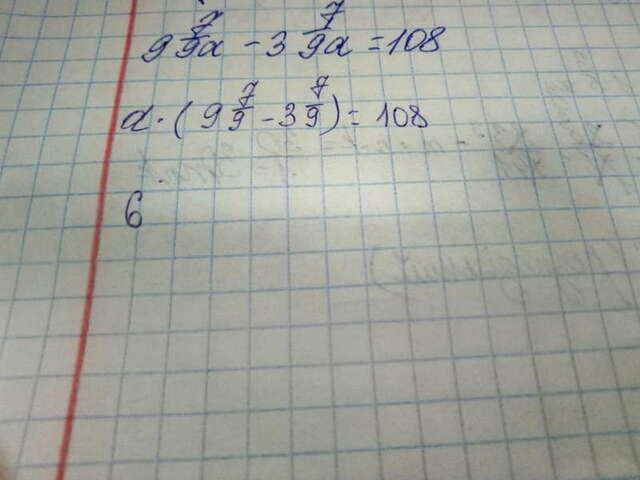 9 7/9 a - 3 7/9 a = 108
a · ( 9 7/9 - 3 7/9 ) = 108
6